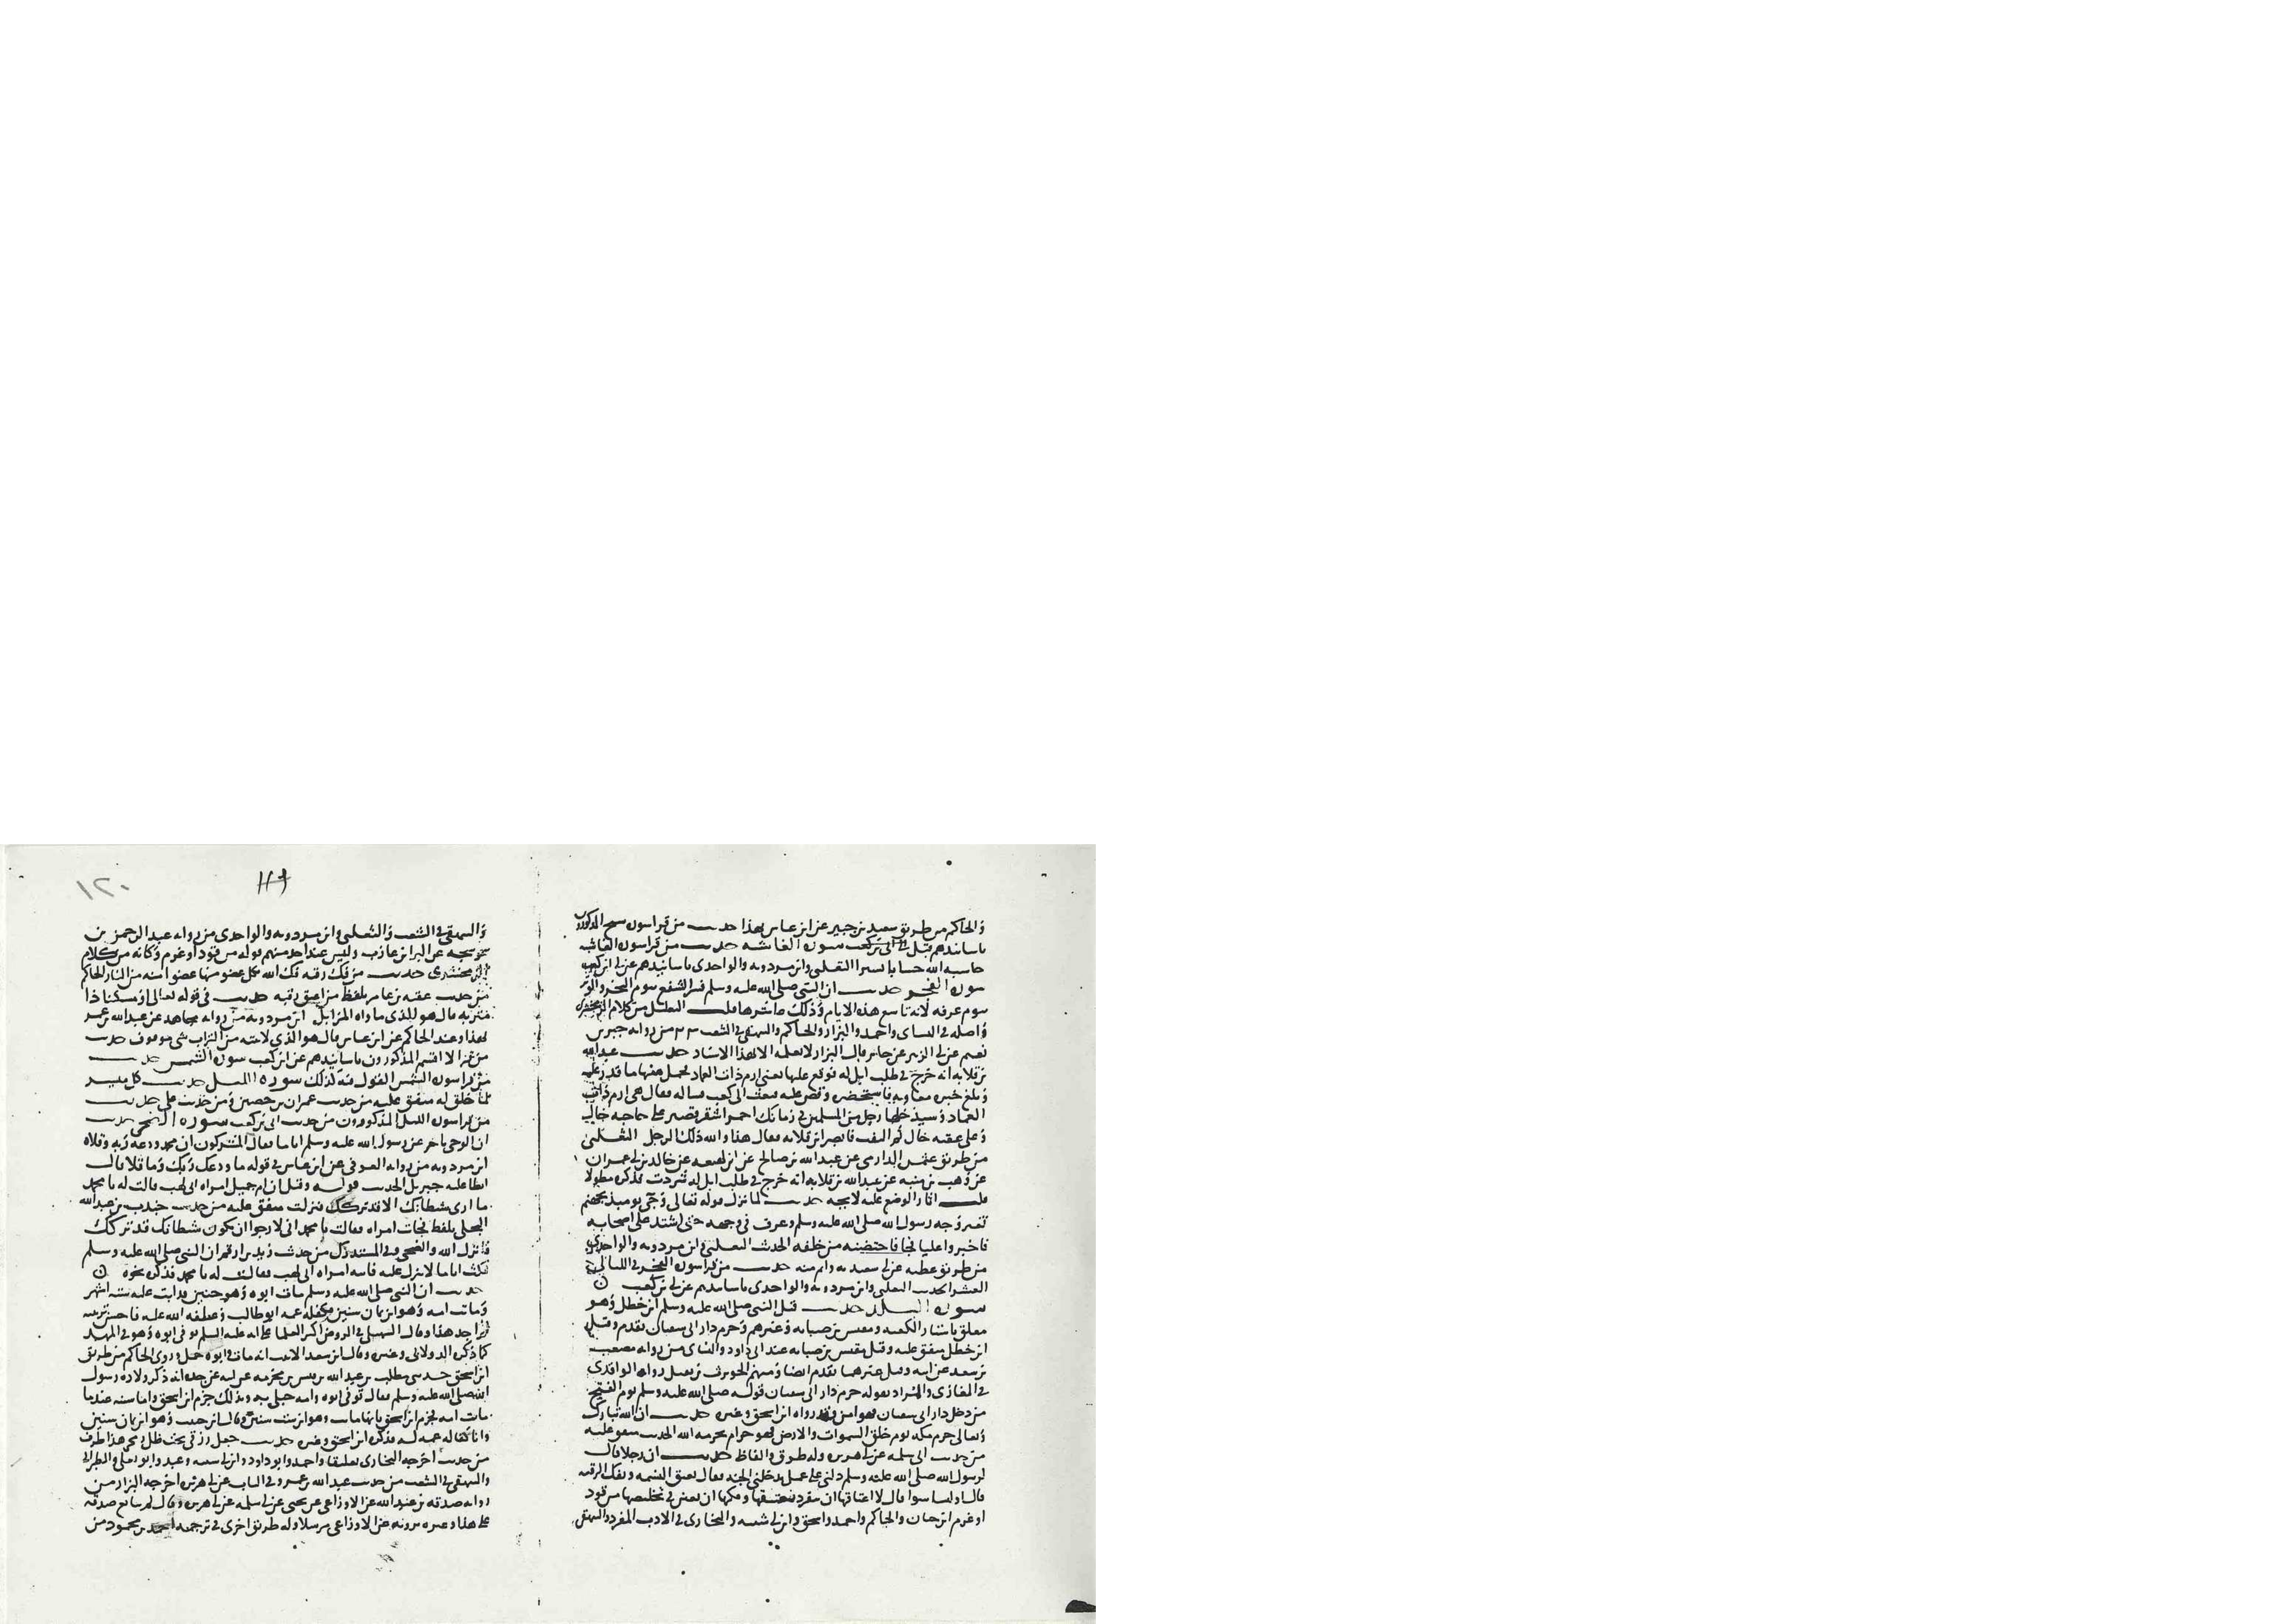 والحاكم من طريق سعيد بن جبير عن ابن عباس بهذا حديث من قرا سورة سبح المذكورون
باسانيدهم قبل الى ابي بن كعب سورة الغاشية حديث من قرا سورة الغاشية
حاسبه الله حسابا يسيرا الثعلبي وابن مردويه والواحدي باسانيدهم عن ابي ابن كعب
سورة الفجر حديث ان النبي صلى الله عليه وسلم فسر الشفع بيوم النحر والوتر
بيوم عرفة لانه تاسع هذه الايام وذلك عاشرها قلت التعليل من كلام الزمخشري
واصله في النساي واحمد والبزار والحاكم والبيهقي في الشعب من رواية جبر بن
نعيم عن ابي الزبير عن جابر قال البزار لا نعلمه الا بهذا الاسناد حديث عبد الله
بن قلابة انه خرج في طلب ابل له فوقع عليها يعني ارم ذات العماد فحمل منها ما قدر عليه
وبلغ خبره معاوية فاستحضره وقص عليه فبعث الى كعب فساله فقال هي ارم ذات
العماد وسيدخلها رجل من المسلمين في زمانك احمر اشقر قصير على حاجبه خال
وعلى عقبه خال ثم التفت فابصر ابن قلابة فقال هذا والله ذلك الرجل الثعلبي
من طريق عثمن الدارمي عن عبد الله بن صالح عن ابن لهيعة عن خالد بن ابي عمران
عن وهب بن منبه عن عبد الله بن قلابة انه خرج في طلب ابل له شردت فذكره مطولا
قلت اثار الوضع عليه لايحة حديث لما نزل قوله تعالى وجيء يوميذ بجهنم
تغير وجه رسول الله صلى الله عليه وسلم وعرف في وجهه حتى اشتد على اصحابه
فاخبروا عليا فجا فاحتضنه من خلفه الحديث الثعلبي وابن مردويه والواحدي
من طريق عطية عن ابي سعيد به واتم منه حديث من قرا سورة الفجر في الليالي
العشر الحديث الثعلبي وابن مردويه والواحدي باسانيدهم عن ابي بن كعب
سورة البلد حديث قتل النبي صلى الله عليه وسلم ابن خطل وهو
معلق باستار الكعبة ومقيس بن صبابة وغيرهم وحرم دار ابي سفيان تقدم وقتل
ابن خطل متفق عليه وقتل مقيس بن صبابة عند ابي داود والنساي من رواية مصعب
بن سعد عن ابيه وقتل غيرهما تقدم ايضا ومنهم الحويرث بن نفيل رواه الواقدي
في المغازي والمراد بقوله حرم دار ابي سفيان قوله صلى الله عليه وسلم يوم الفتح
من دخل دار ابي سفيان فهو امن وقد رواه ابن اسحق وغيره حديث ان الله تبارك
وتعالى حرم مكة يوم خلق السموات والارض فهو حرام بحرمة الله الحديث متفق عليه
من حديث ابي سلمة عن ابي هريرة وله طرق والفاظ حديث ان رجلا قال
لرسول الله صلى الله عليه وسلم دلني على عمل يدخلني الجنة فقال تعتق النسمة وتفك الرقبة
قال اوليسا سوا قال لا اعتاقها ان تنفرد بعتقها وفكها ان تعين في تخليصها من قود
او غرم ابن حبان والحاكم واحمد واسحق وابن ابي شيبة والبخاري في الادب المفرد والبيهقي
١٢٠
١١٩
والبيهقي في الشعب والثعلبي وابن مردويه والواحدي من رواية عبد الرحمن بن
عوسجة عن البرا بن عازب وليس عند احد منهم قوله من قود او غرم وكانه من كلام
الزمخشري حديث من فك رقبة فك الله بكل عضو منها عضوا منه من النار الحاكم
من حديث عقبة بن عامر بلفظ من اعتق رقبة حديث في قوله تعالى او مسكينا ذا
متربة قال هو الذي ماواه المزابل ابن مردويه من رواية مجاهد عن عبد الله بن عمر
بهذا وعند الحاكم عن ابن عباس قال هو الذي لا يقيه من التراب شي موقوف حديث
من قرا لا اقسم المذكورون باسانيدهم عن ابي بن كعب سورة الشمس حديث
من قرا سورة الشمس القول فيه كذلك سورة الليل حديث كل ميسر
لما خلق له متفق عليه من حديث عمران بن حصين ومن حديث علي حديث
من قرا سورة الليل المذكورون من حديث ابي بن كعب سورة الضحى حديث
ان الوحي تاخر عن رسول الله صلى الله عليه وسلم اياما فقال المشركون ان محمدا ودعه ربه وقلاه
ابن مردويه من رواية العوفي عن ابن عباس في قوله ما ودعك ربك وما قلا قال
ابطا عليه جبريل الحديث قوله وقيل ان ام جميل امراة ابي لهب قالت له يا محمد
ما ارى شيطانك الا قد تركك فنزلت متفق عليه من حديث جندب بن عبد الله
البجلي بلفظ فجات امراة فقالت يا محمد اني لارجوا ان يكون شيطانك قد تركك
فانزل الله والضحى وفي المستدرك من حديث زيد بن ارقم ان النبي صلى الله عليه وسلم
مكث اياما لا ينزل عليه فاتته امراة ابي لهب فقالت له يا محمد فذكره نحوه
حديث ان النبي صلى الله عليه وسلم مات ابوه وهو جنين قد اتت عليه ستة اشهر
وماتت امه وهو ابن ثمان سنين فكفله عمه ابو طالب وعطفه الله عليه فاحسن تربيته
لم اجد هذا وقال السهيلي في الروض اكثر العلما على انه عليه السلم توفي ابوه وهو في المهد
كما ذكره الدولابي وغيره وقال ابن سعد الاثبت انه مات ابوه وهو حمل وروى الحاكم من طريق
ابن اسحق حدثني مطلب بن عبد الله بن قيس بن مخرمة عن ابيه عن جده انه ذكر ولادة رسول
الله صلى الله عليه وسلم فقال توفي ابوه وامه حبلى به وبذلك جزم ابن اسحق واما سنه عندما
ماتت امه فجزم ابن اسحق بانها ماتت وهو ابن ست سنين وقال ابن حبيب وهو ابن ثمان سنين
واما كفالة عمه له فذكره ابن اسحق وغيره حديث جعل رزقي تحت ظل رمحي هذا طرف
من حديث اخرجه البخاري تعليقا واحمد وابو داود وابن ابي شيبة وعبد وابو يعلى والطبراني
والبيهقي في الشعب من حديث عبد الله بن عمر وفي الباب عن ابي هريرة اخرجه البزار من
رواية صدقة بن عبد الله عن الاوزاعي عن يحيى عن ابي سلمة عن ابي هريرة وقال لم يتابع صدقة
على هذا وغيره يرويه عن الاوزاعي مرسلا وله طريق اخرى في ترجمة احمد بن محمود من